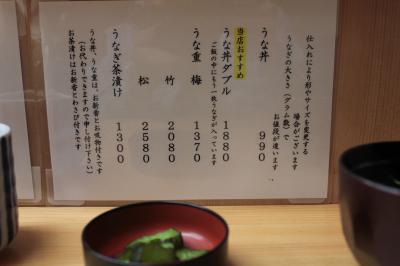 仕入れにより形やサイズを変更する
場合がございます
うなぎの大きさ(グラム数)で
お値段が違います
うな丼 990
当店おすすめ
うな丼ダブル 1880
ご飯の中にもう一枚うなぎが入っています
うな重 梅 1370
竹 2080
松 2580
うなぎ茶漬け 1300
うな丼、うな重は、お新香とお吸物付きです
(お代わりできますので申し付け下さい)
お茶漬けはお新香とわさび付きです